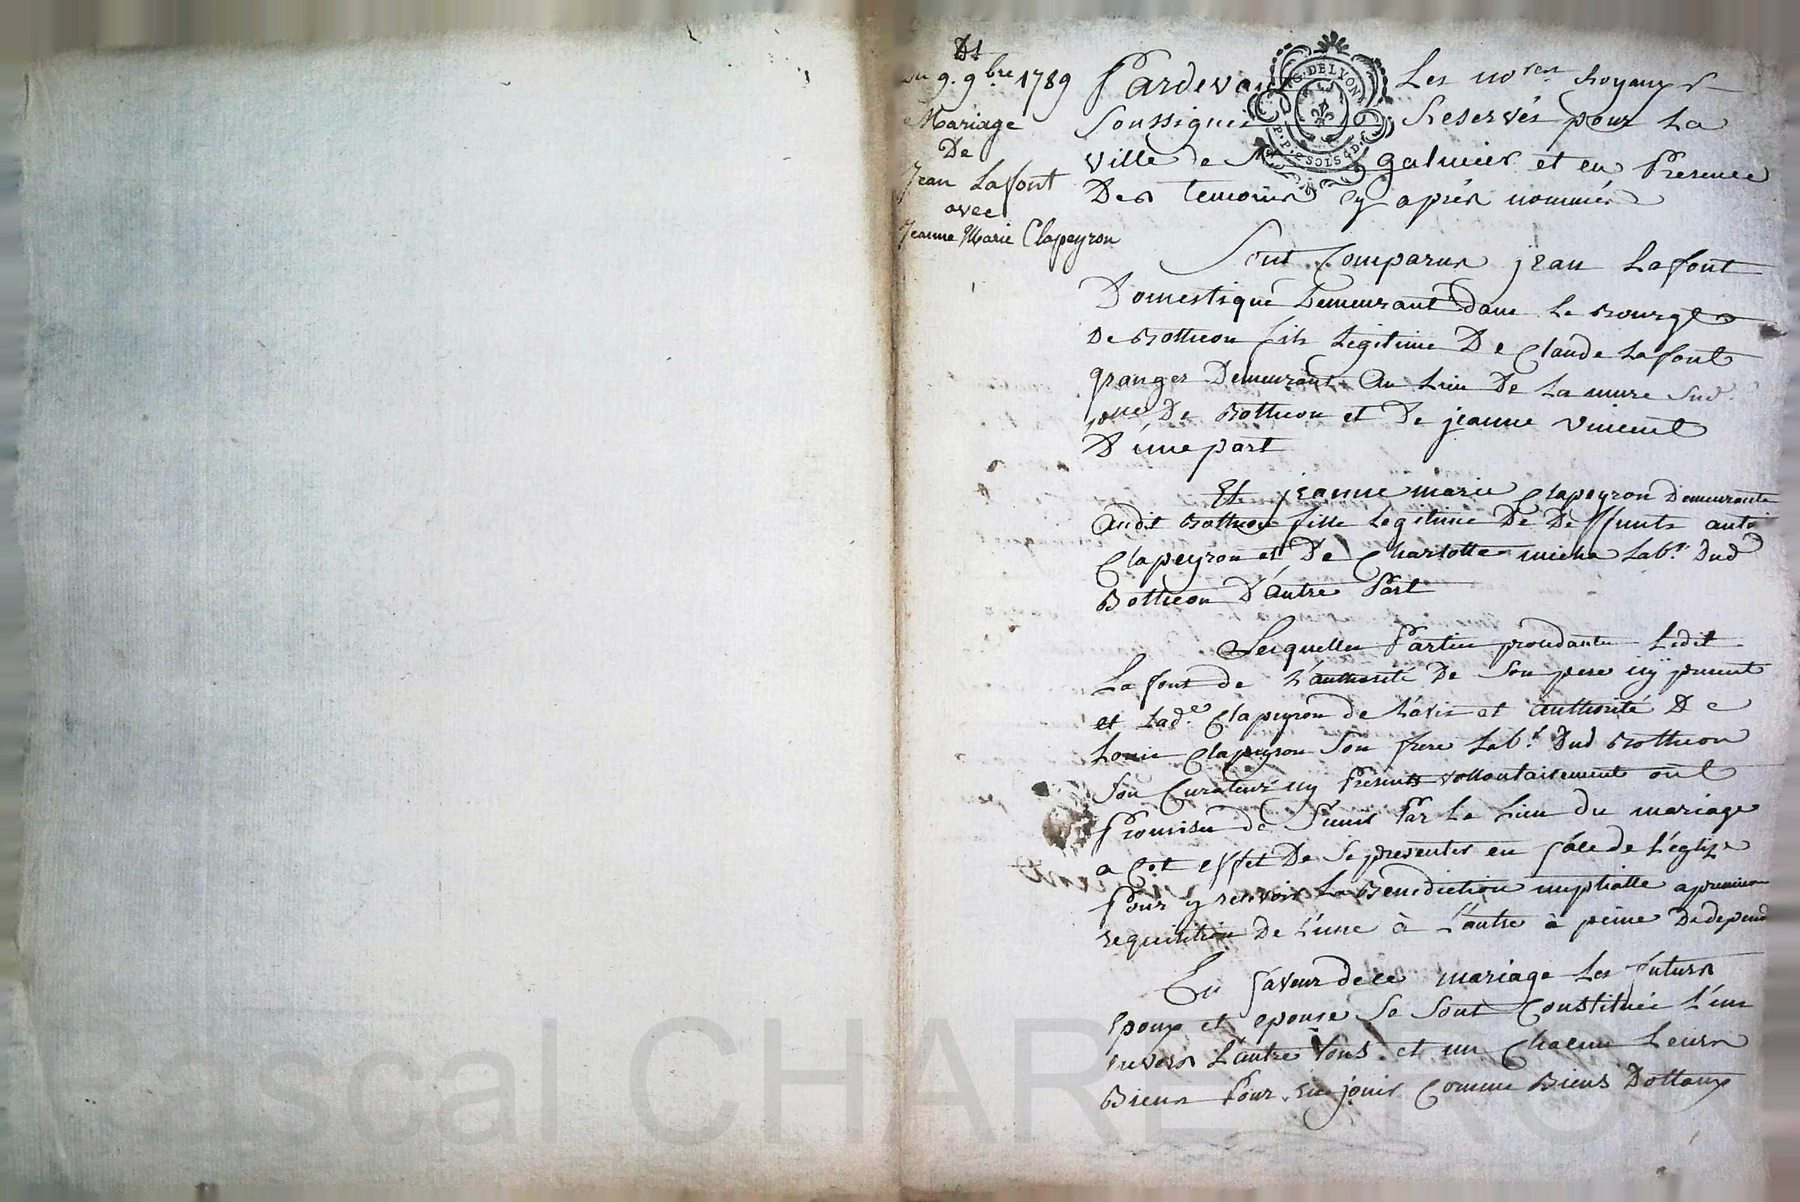 Du 9. 9bre 1789
Mariage
De
Jean Lafont
avec
Jeanne Marie Clapeyron
G. DE LYON
P.P. 2 SOLS 4 D.
Pardevant Les nores Royaux
soussignes Reservés pour La
ville de St galmier et en Presence
Des temoins cy après nommés
Sont Comparus jean Lafont
Domestique Demeurant dans Le Bourg
De Botheon fils Legitime De Claude Lafont
granger Demeurant Au Lieu De La mure
De Botheon et De jeanne vincent
D'une part
Et jeanne marie Clapeyron Demeurante
Audit Botheon fille Legitime De Deffunts
Clapeyron et De Charlotte Labr. Dud
Botheon D'autre Part
Lesquelles Parties procedantes Ledit
Lafont de L'authorité De Son pere icy present
et Lade. Clapeyron de L'avis et Authorité De
Louis Clapeyron Son frere Labr. Dud Botheon
Son Curateur icy Presents vollontairement ont
Promises de S'unir Par Le Lien du mariage
a Cet effet De Se presenter en face de L'eglize
Pour y recevoir La Benediction nuptialle a premiere
requisition De L'une à L'autre à peine De depend
En faveur de ce mariage Les futurs
Epoux et epouse Se Sont Constitués L'un
envers L'autre tous et un Chacun Leurs
Biens Pour En jouir Comme Biens Dottaux
Pascal CHAREYRON